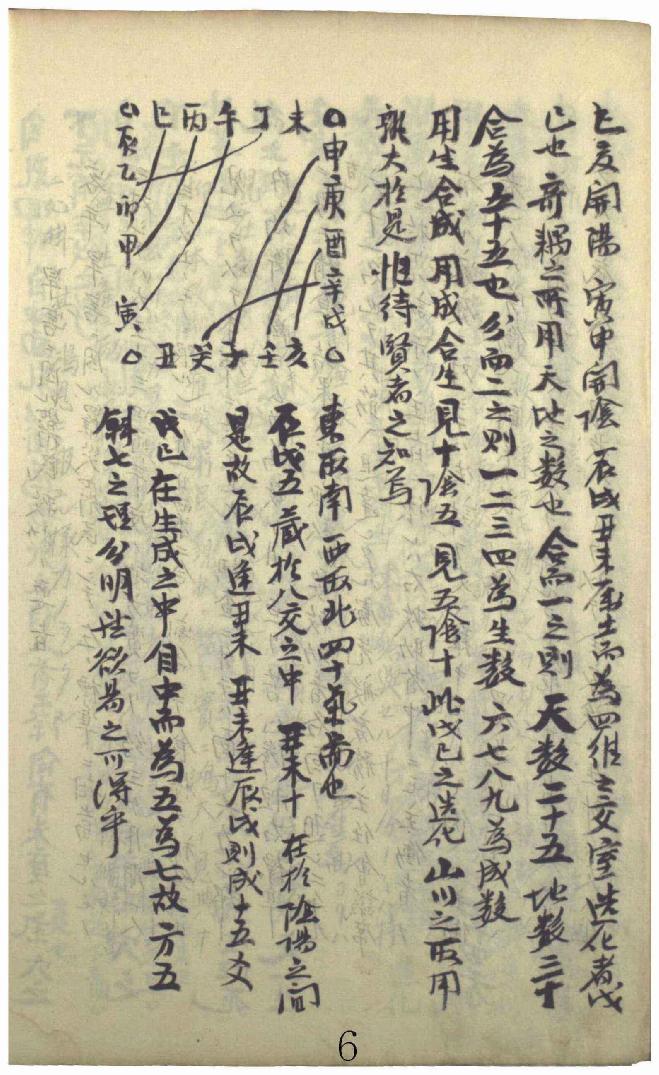 巳亥開陽 寅申開陰 辰戌丑未屬土而為四維之交室 造化者戊
己也 奇耦之所用天地之数也 合而一之則天数二十五 地数三十
合為五十五也 分而二之則一二三四為生数 六七八九為成数
用生合成 用成合生 見十陰五 見五陰十 此戊己之造化 山川之所用
大於是 惟待賢者之知焉
○申庚酉辛戌○
未 丁 午 丙 巳 ○辰乙卯甲 寅○
丑 癸 子 壬 亥
東取南 西取北 四十氣而也
辰戌五 藏於八交之中 丑未十 在於陰陽之間
是故辰戌逢丑未 丑未逢辰戌則成十五爻
戊己在生成之中 自中而為五為七故方五
斜七之理分明 欲易之可得乎
6